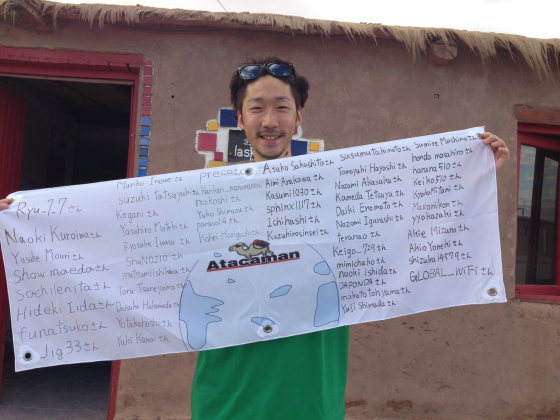 Ryu-27さん
Naoki Kuroiwaさん
Yusuke Mouriさん
Show maedaさん
Sachileritaさん
Hideki Iidaさん
funatsukoさん
Jig33さん
Mariko Inoueさん
suzuki tatsujiさん
Keganiさん
Yasuhiro Mutohさん
Ryosuke Iwasaさん
ShuNO210さん
Toru Tsurejimaさん
Yotakahashiさん
Yuki Kanaiさん
precoさん
nakoshiさん
Yuho Shimuraさん
parasol6さん
Yohei Moriguchiさん
Asako Sakashitaさん
Aimi Arakawaさん
Kasumi1030さん
sphinx1117さん
Ichihashiさん
Kazuhirosinseiさん
Atacaman
susumutahimotoさん
Tomoyuki Hayashiさん
Nozomi Akasakaさん
Kameda Tetsuyaさん
Daiki Enomotoさん
Nozomi Igarashiさん
teranaoさん
Keigo_729さん
mimichakoさん
naoki ishidaさん
DAPONDAさん
makoto tohyamaさん
Yuji Shimadaさん
Sumire Mashimaさん
honda masahiroさん
hanana510さん
Keiko510さん
KyokoMitaniさん
Maronikonさん
yyokazakiさん
Akie Mizunoさん
Akio Yoneniさん
shizuka14579さん
GLOBAL_WiFiさん
las